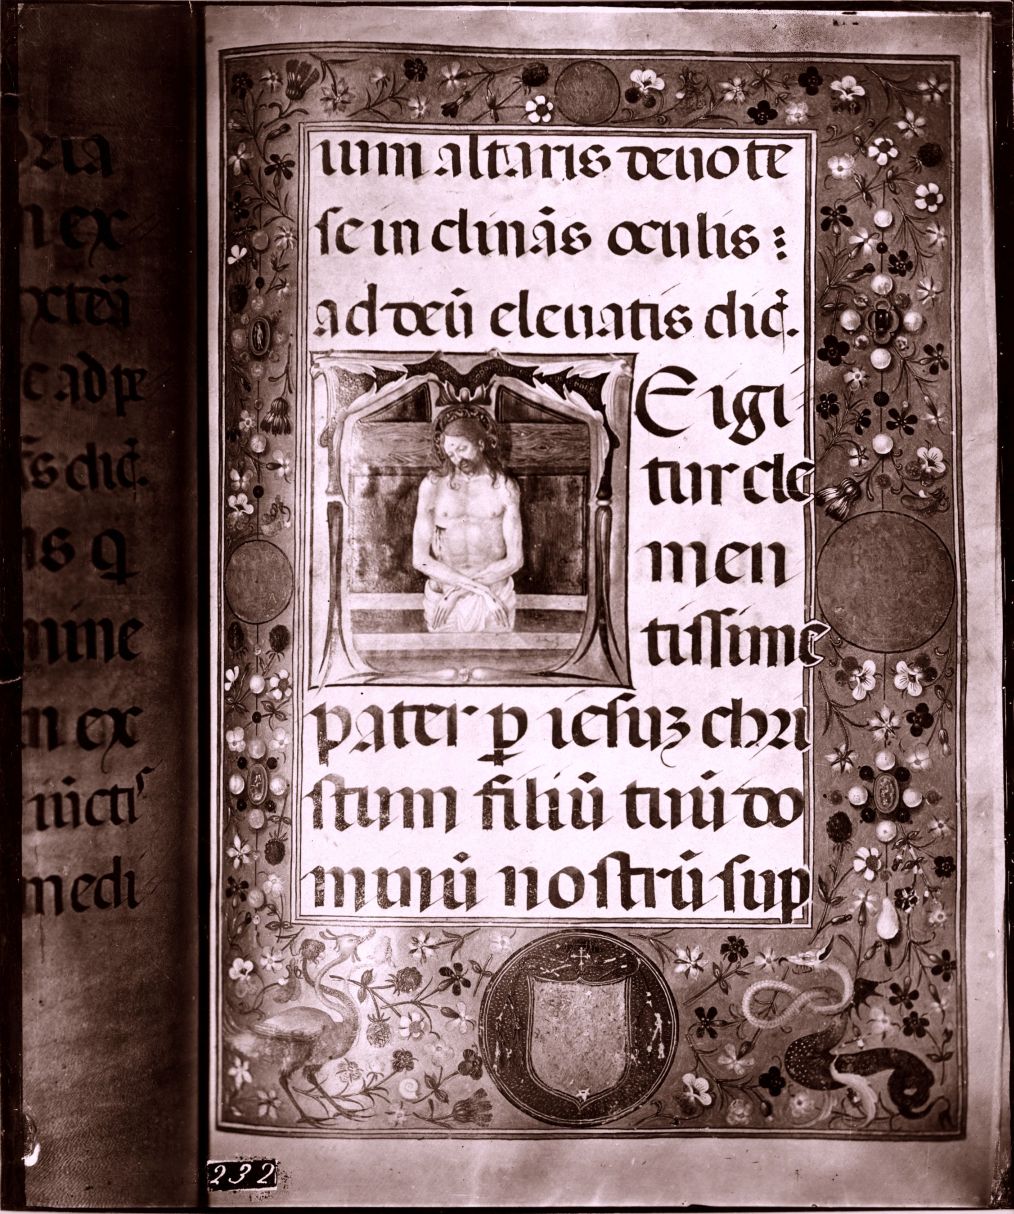 ria
n ex
xteā
c ad pe
s dic̄.
is q̄
mine
n ex
iūcti
medi
uum altaris deuote
se in clinās oculis :
ad deū eleuatis dic̄.
TEigi
tur cle
men
tissime
pater p iesuz chri
stum filiū tuū do
minū nostrū sup
232